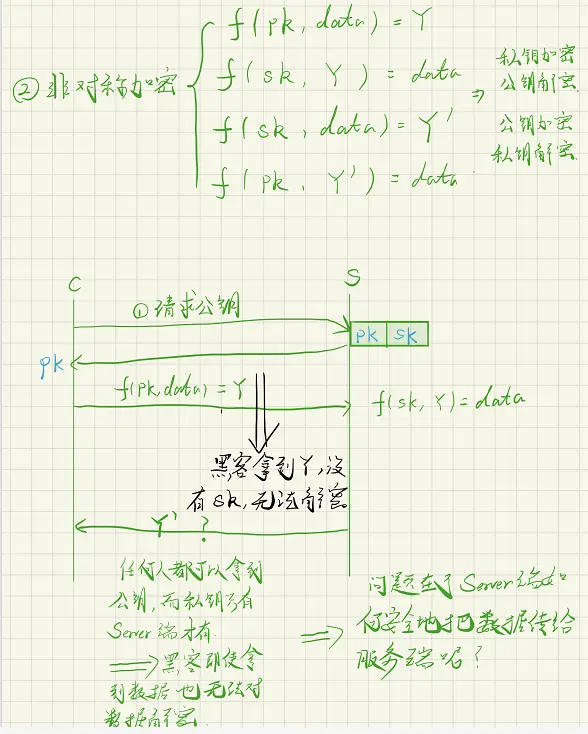 f(pk, data) = Y
② 非对称加密
f(sk, Y) = data
f(sk, data) = Y'
f(pk, Y') = data
⇒
私钥加密
公钥解密
公钥加密
私钥解密
C
S
① 请求公钥
pk sk
pk
f(pk, data) = Y
f(sk, Y) = data
黑客拿到Y,没
有sk,无法解密
Y' ?
任何人都可以拿到
公钥,而私钥只有
Server端才有.
⇒ 黑客即使拿
到数据也无法对
数据解密.
⇒
问题在于Server端如
何安全地把数据传给
服务端呢?